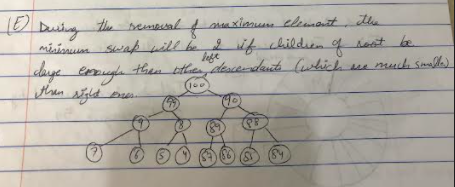 (E) During the removal of maximum element, the
minimum swap will be 2 if children of root be
large enough than other left descendants (which are much smaller
than right ones
100
99 90
9 8 89 88
7 6 5 4 87 86 85 84